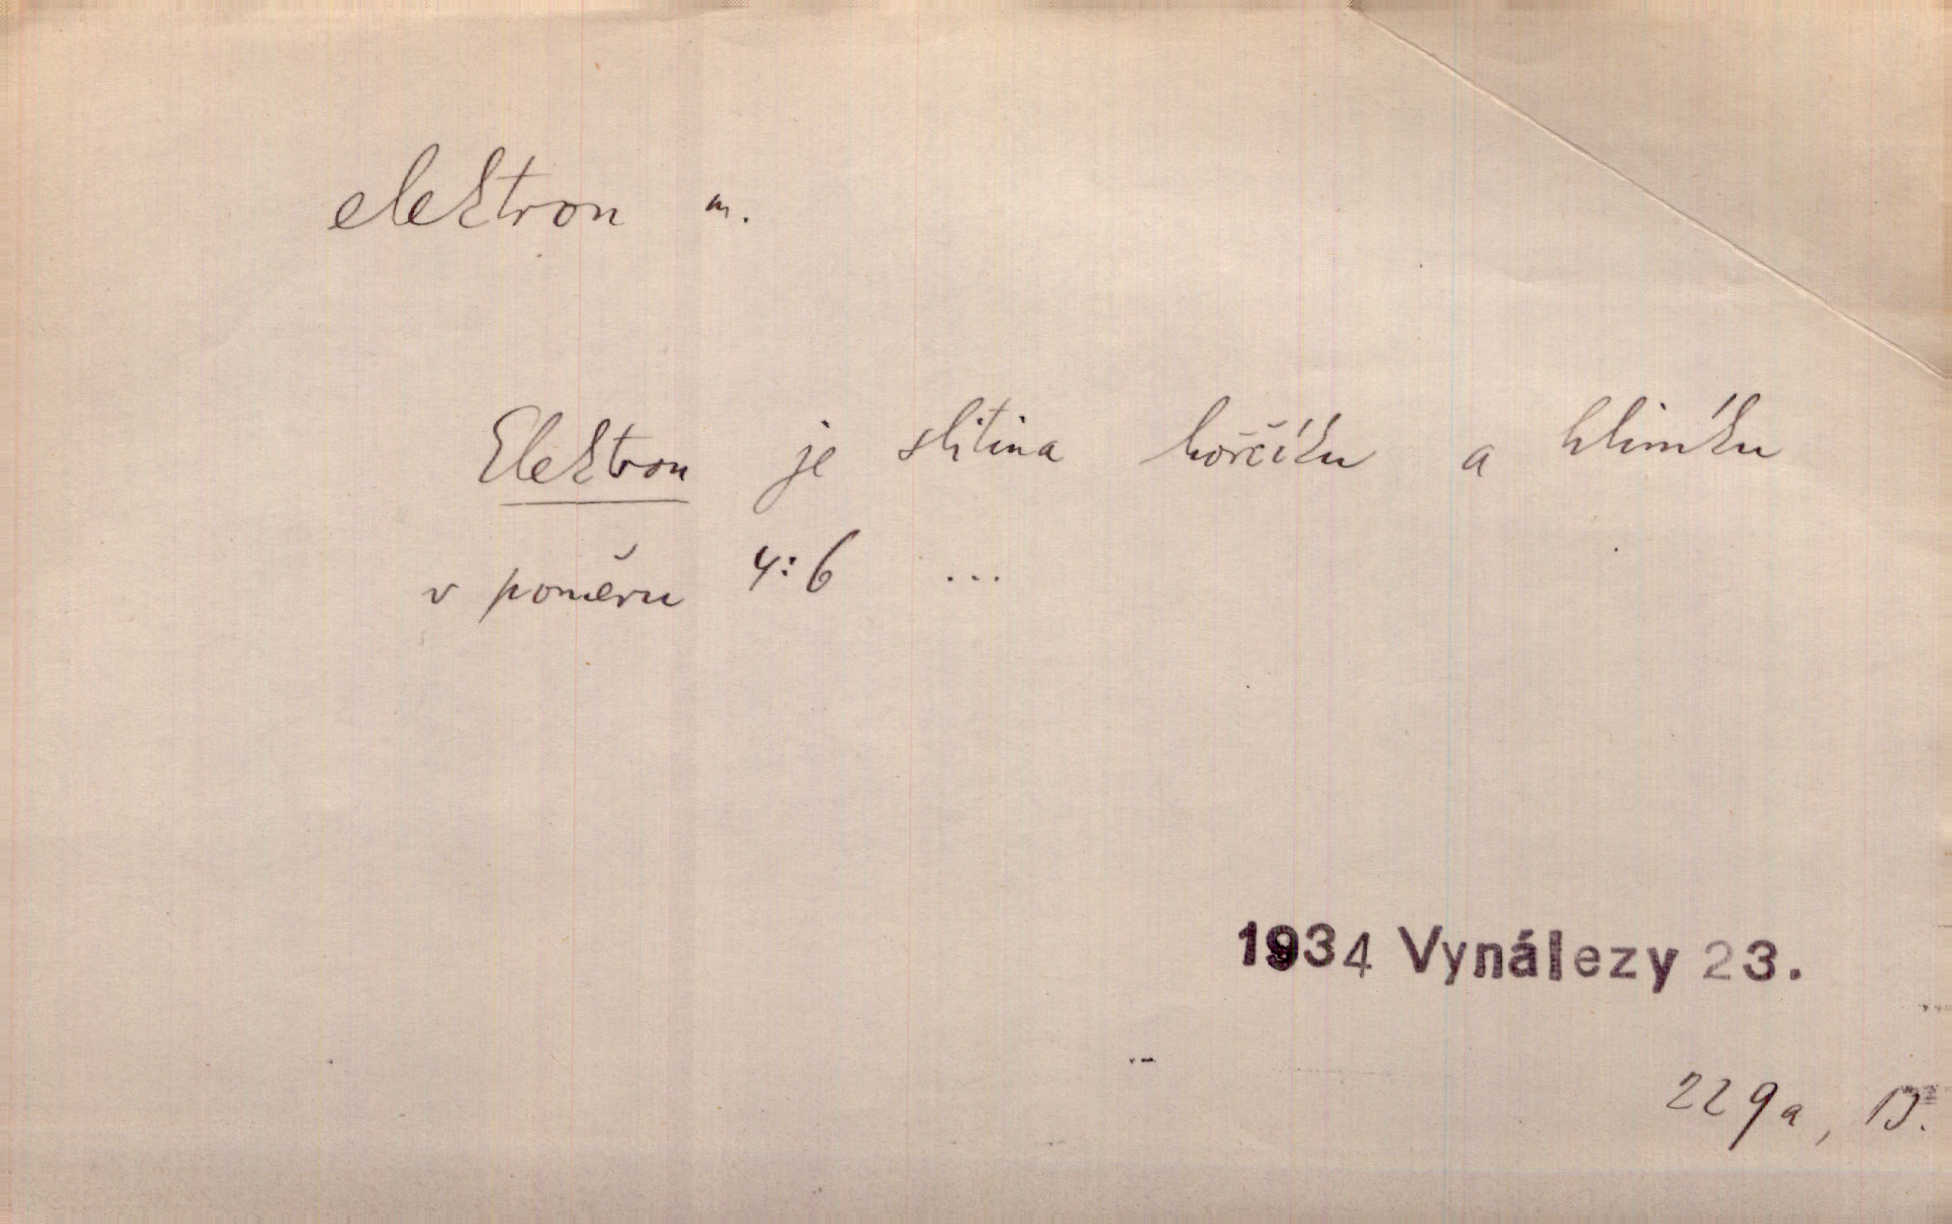 elektron m.
Elektron je slitina hořčíku a hliníku
v poměru 4:6 ...
1934 Vynálezy 23.
229a, B.